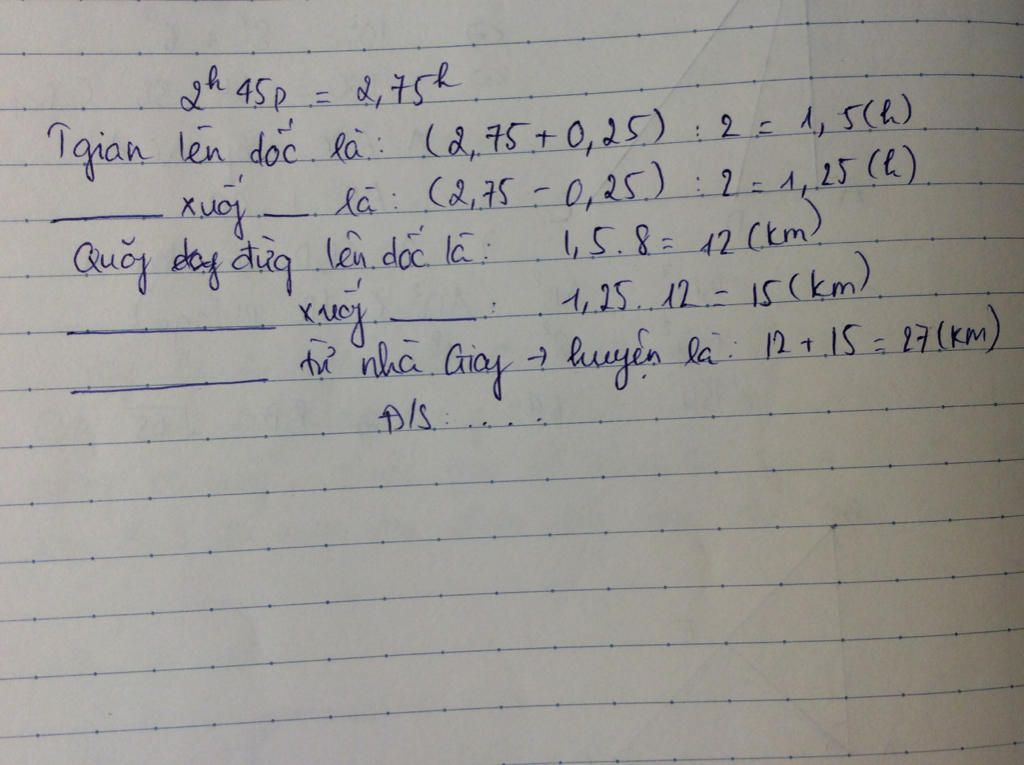 2h 45p = 2,75h
Tgian lên dốc là: (2,75 + 0,25) : 2 = 1,5(h)
______ xuốg __ là: (2,75 - 0,25) : 2 = 1,25(h)
Quãg đừg lên dốc là: 1,5.8 = 12(km)
____________ xuốg _____ : 1,25.12 = 15(km)
____________ từ nhà Giag → huyện là: 12 + 15 = 27(km)
Đ/S: ....